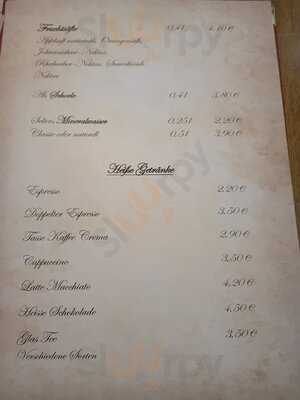 Fruchtsäfte 0,4l 4,10 €
Apfelsaft naturtrüb, Orangensaft,
Johannisbeer-Nektar,
Rhabarber-Nektar, Sauerkirsch
Nektar
Als Schorle 0,4l 3,80 €
Selters Mineralwasser 0,25l 2,20 €
Classic oder naturell 0,5l 3,90 €
Heiße Getränke
Espresso 2,20 €
Doppelter Espresso 3,50 €
Tasse Kaffee Crema 2,90 €
Cappuccino 3,50 €
Latte Macchiato 4,20 €
Heisse Schokolade 4,50 €
Glas Tee 3,50 €
Verschiedene Sorten
sluurpy